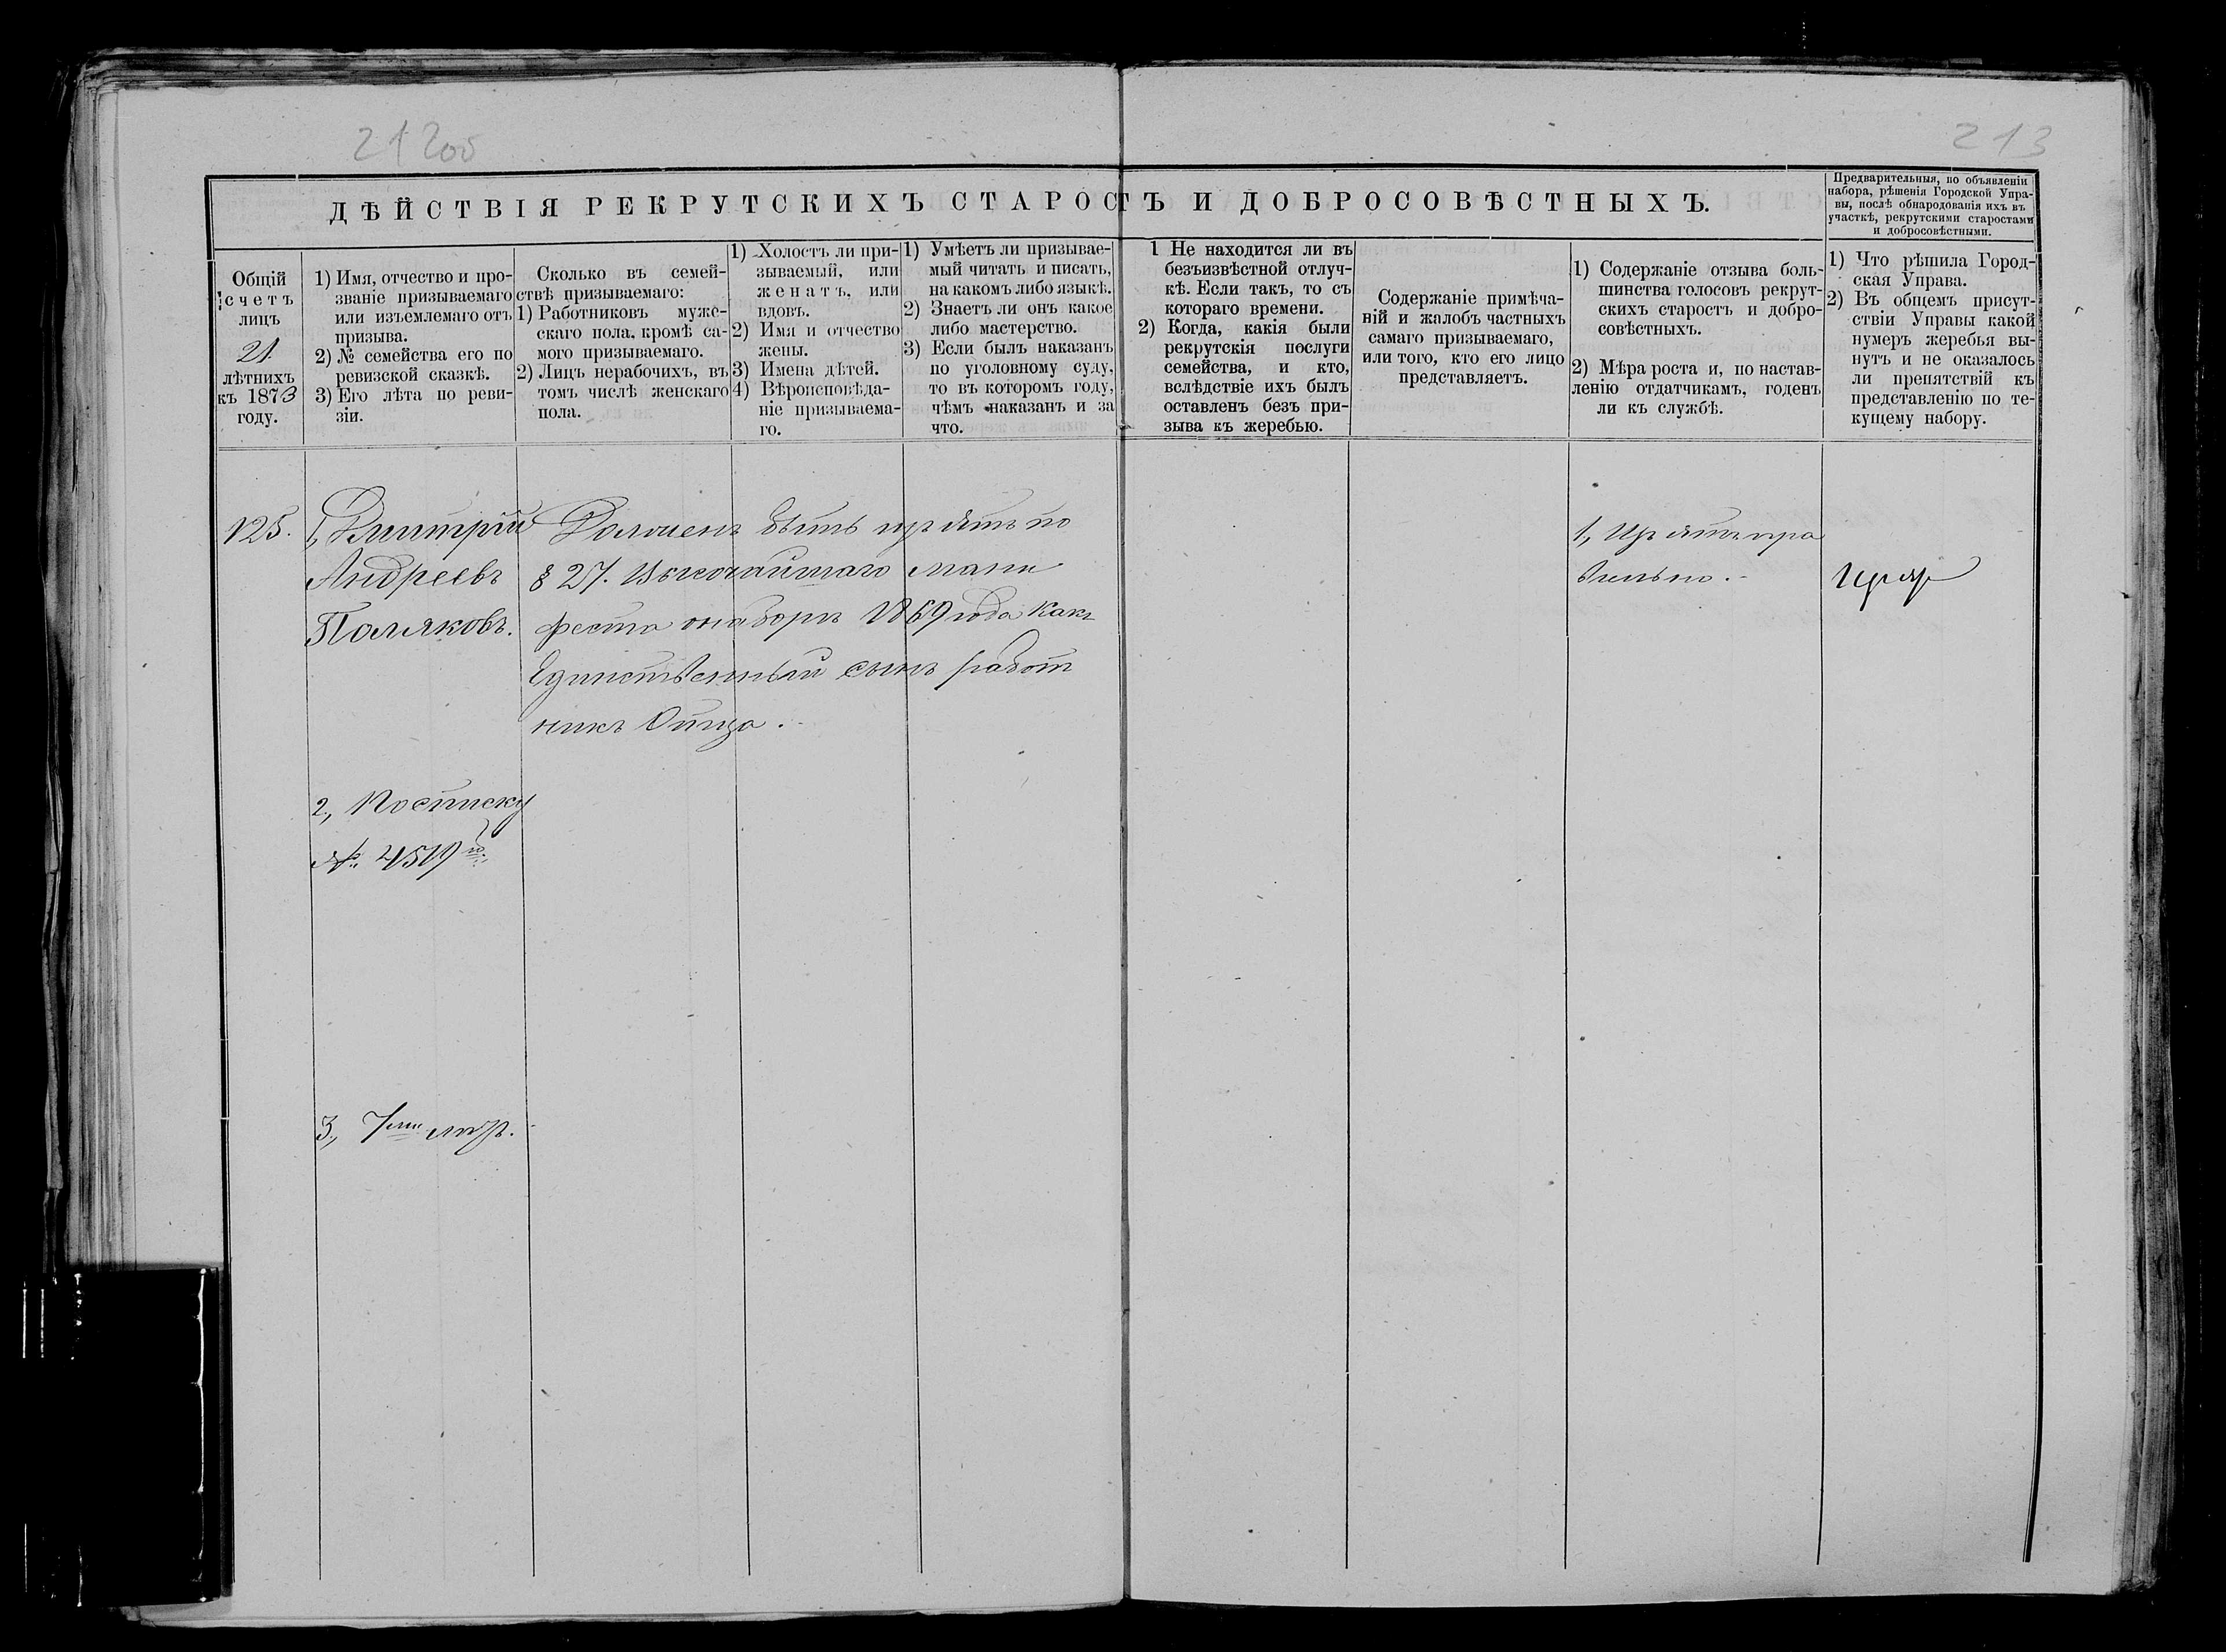 213
ДѢЙСТВІЯ РЕКРУТСКИХЪ СТАРОСТЪ И ДОБРОСОВѢСТНЫХЪ.
Предварительныя, по объявленіи
набора, рѣшенія Городской Упра-
вы, послѣ обнародованія ихъ въ
участкѣ, рекрутскими старостами
и добросовѣстными.
Общій
счетъ
лицъ
21
лѣтнихъ
къ 1873
году.
1) Имя, отчество и про-
званіе призываемаго
или изъемлемаго отъ
призыва.
2) № семейства его по
ревизской сказкѣ.
3) Его лѣта по реви-
зіи.
Сколько въ семей-
ствѣ призываемаго:
1) Работниковъ муже-
скаго пола, кромѣ са-
мого призываемаго.
2) Лицъ нерабочихъ, въ
томъ числѣ женскаго
пола.
1) Холостъ ли при-
зываемый, или
женатъ, или
вдовъ.
2) Имя и отчество
жены.
3) Имена дѣтей.
4) Вѣроисповѣда-
ніе призываема-
го.
1) Умѣетъ ли призывае-
мый читать и писать,
на какомъ либо языкѣ.
2) Знаетъ ли онъ какое
либо мастерство.
3) Если былъ наказанъ
по уголовному суду,
то въ которомъ году,
чѣмъ наказанъ и за
что.
1 Не находится ли въ
безъизвѣстной отлуч-
кѣ. Если такъ, то съ
котораго времени.
2) Когда, какія были
рекрутскія послуги
семейства, и кто,
вслѣдствіе ихъ былъ
оставленъ безъ при-
зыва къ жеребью.
Содержаніе примѣча-
ній и жалобъ частныхъ
самаго призываемаго,
или того, кто его лицо
представляетъ.
1) Содержаніе отзыва боль-
шинства голосовъ рекрут-
скихъ старостъ и добро-
совѣстныхъ.
2) Мѣра роста и, по настав-
ленію отдатчикамъ, годенъ
ли къ службѣ.
1) Что рѣшила Город-
ская Управа.
2) Въ общемъ присут-
ствіи Управы какой
нумеръ жеребья вы-
нутъ и не оказалось
ли препятствій къ
представленію по те-
кущему набору.
125.
1, Дмитрій
Андреевъ
Поляковъ.
2, По списку
№ 4519
3, 7ми лѣтъ.
Долженъ быть изъятъ по
§ 27. Высочайшаго мани
феста о наборѣ 1869 года какъ
Единственный сынъ работ
никъ Отца.
1, Изъятъ пра
вильно.